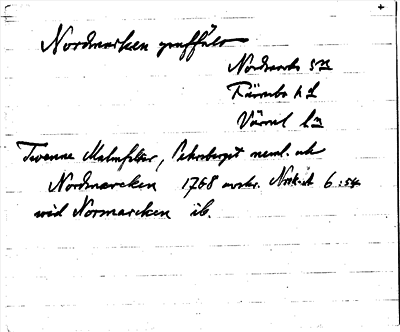 Nordmarken gruffält
Nordmarks sn
Färnebo hd
Värml. l.n
Tvenne Malmfält, Pehrsberget neml. och
Nordmarcken 1768 avskr. N 6:54
wid Normarcken ib.